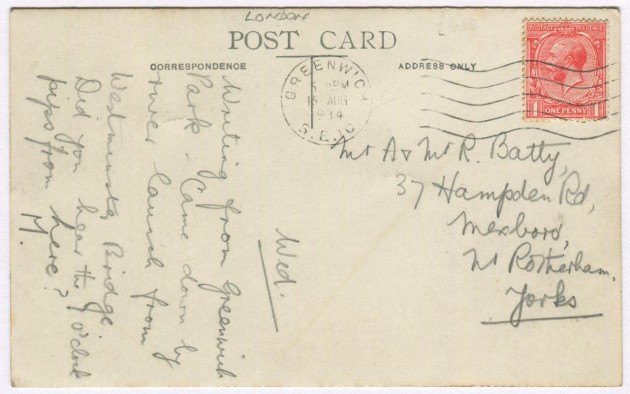 LONDON
POST CARD
CORRESPONDENCE
ADDRESS ONLY
GREENWICH
PM
15 AUG
1934
S.E.10
1 ONE PENNY 1
Wed.
Writing from Greenwich
Park. Came down by
river launch from
Westminster Bridge
Did you hear the o'clock
pips from here?
M.
Mr A & Mr R. Batty,
37 Hampden Rd,
Mexboro,
Nr Rotherham.
Yorks